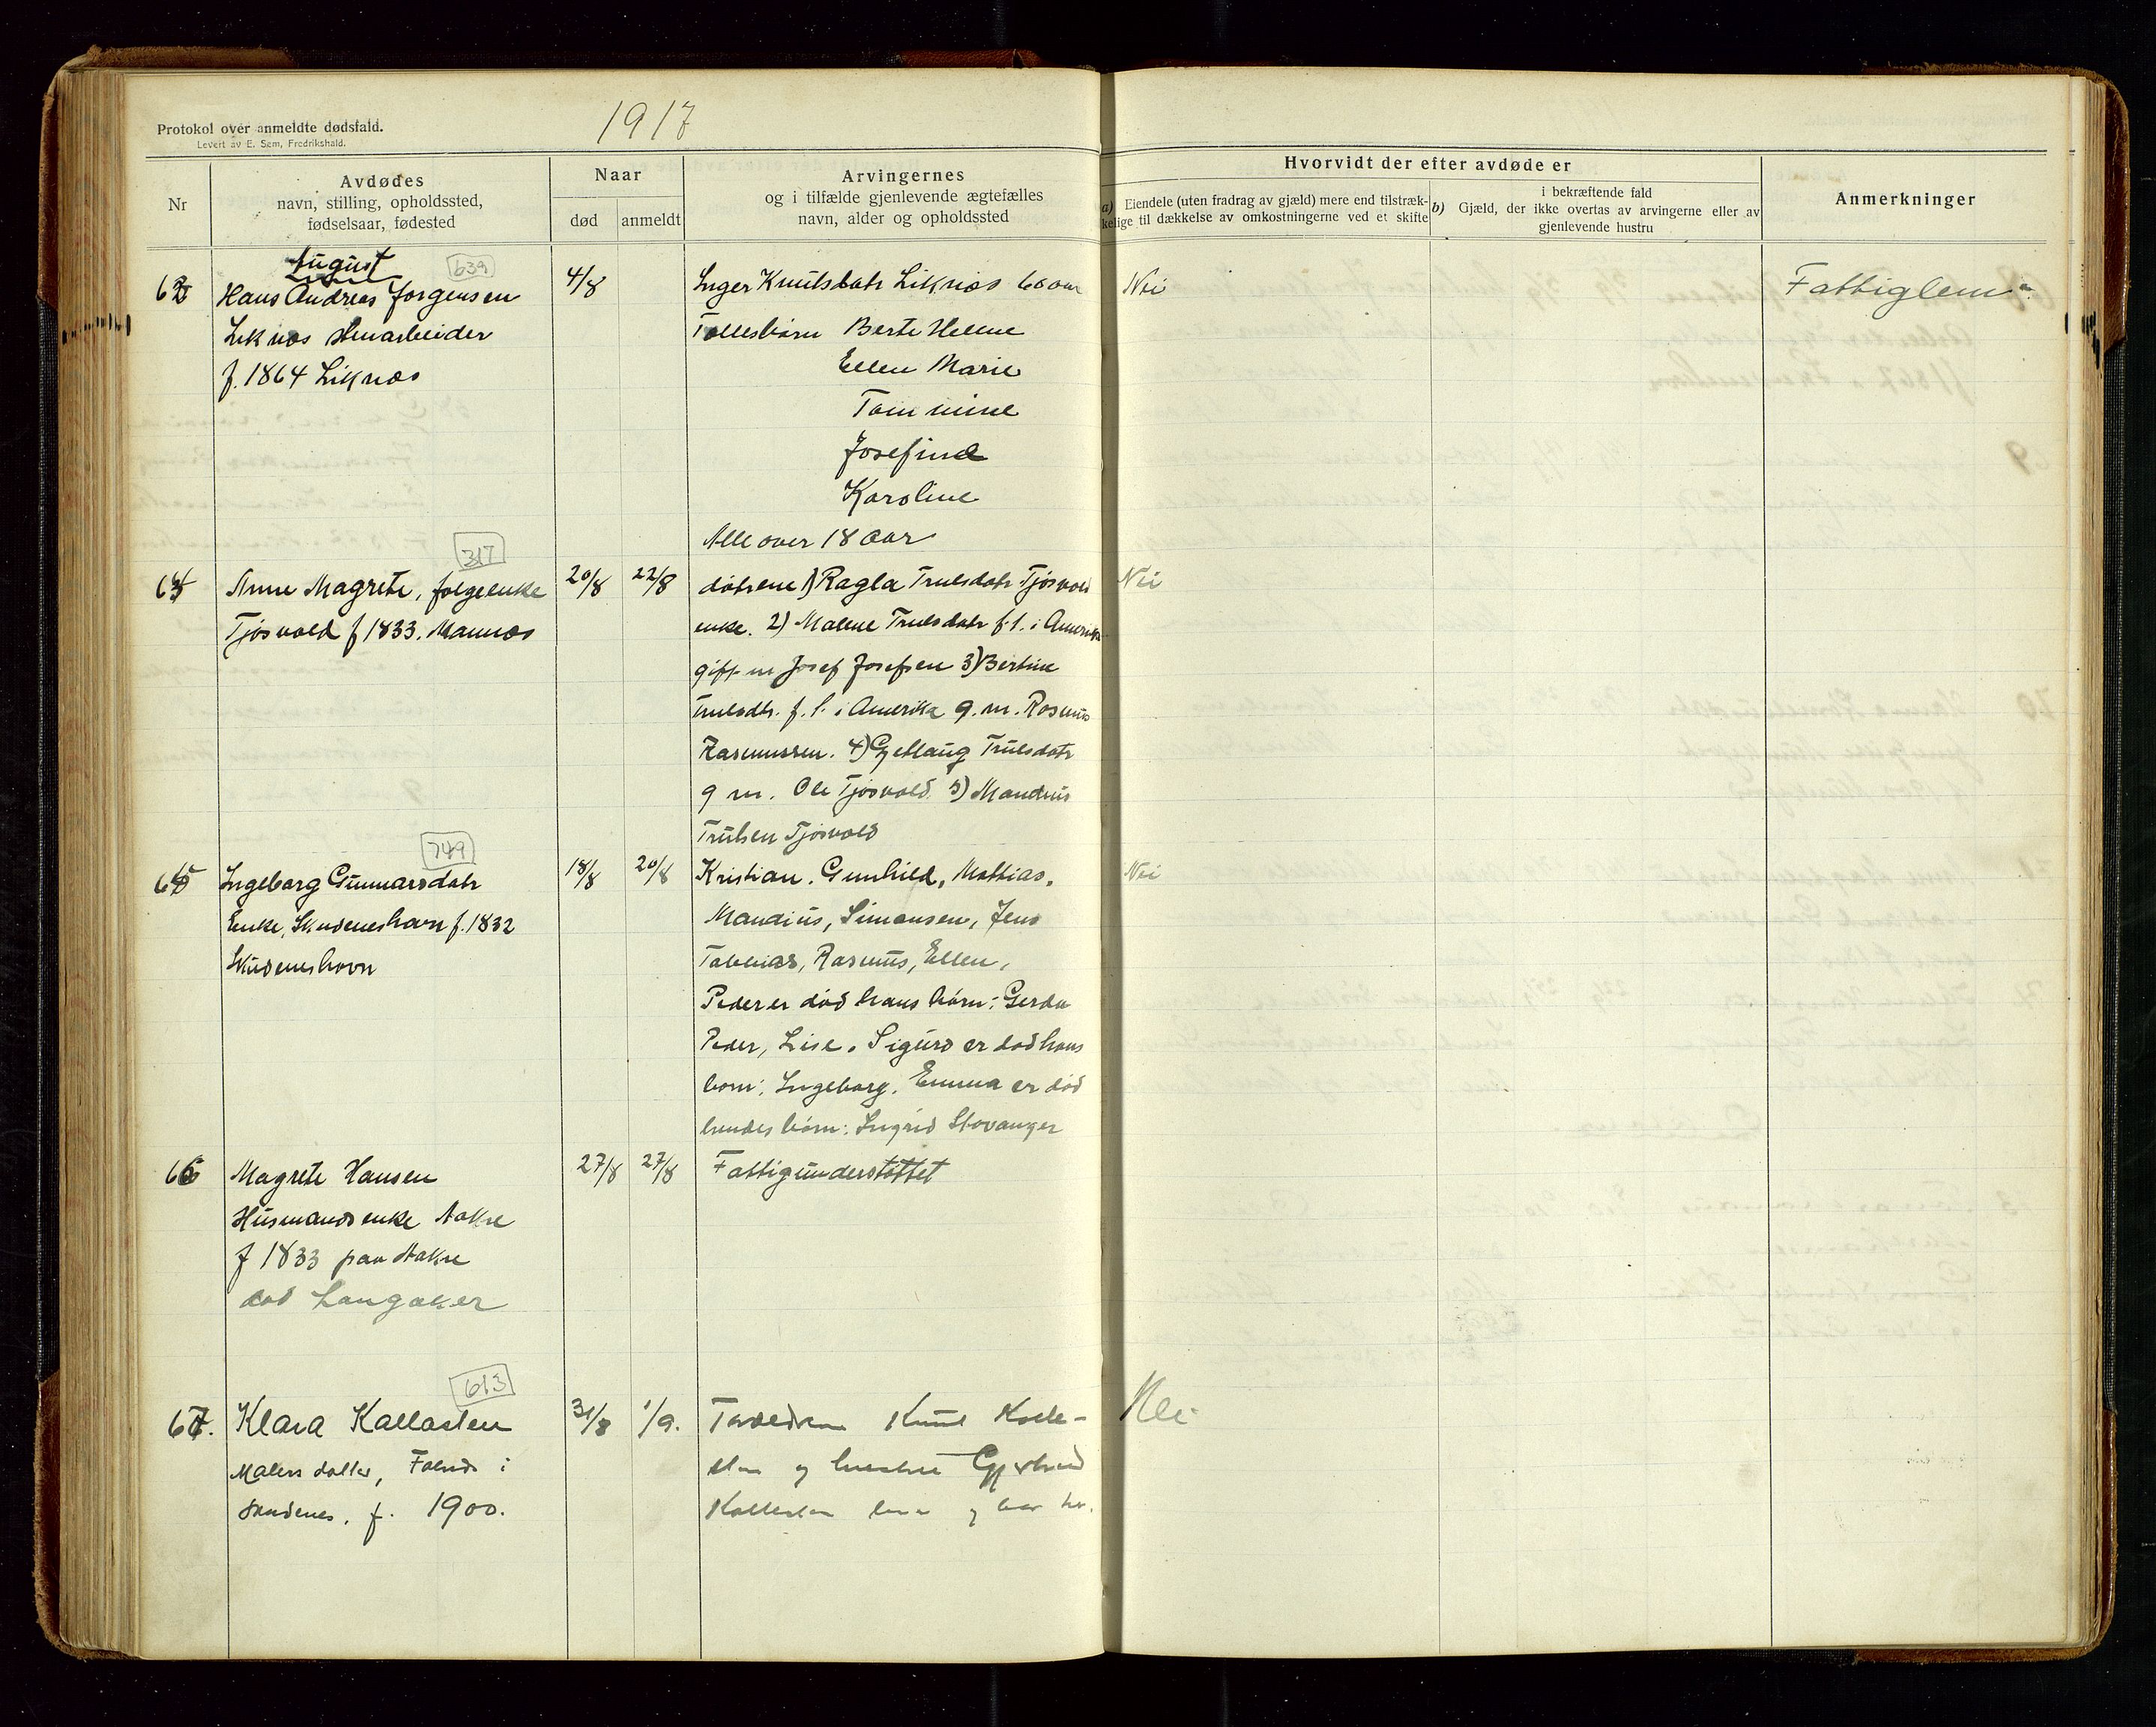 1917
Protokol over anmeldte dødsfald.
Levert av E. Sem, Fredrikshald.
Nr
Avdødes
navn, stilling, opholdssted,
fødselsaar, fødested
Naar
død
anmeldt
Arvingernes
og i tilfælde gjenlevende ægtefælles
navn, alder og opholdssted
Hvorvidt der efter avdøde er
a) Eiendele (uten fradrag av gjæld) mere end tilstræk-
kelige til dækkelse av omkostningerne ved et skifte
b) i bekræftende fald
Gjæld, der ikke overtas av arvingerne eller av
gjenlevende hustru
Anmerkninger
August
639
Hans Andreas Jørgensen
Liknæs stenarbeider
f. 1864 Liknæs
4/8
Inger Knutsdatr Liknæs 60 aar
Fællesbørn Berte Helene
Ellen Marie
Tommine
Josefine
Karoline
Alle over 18 aar
Nei
Fattiglem
317
Anne Magrete, folgeenke
Tjøsvold f 1833. Mannes
20/8
22/8
døtrene 1) Ragla Trulsdatr Tjøsvold
enke. 2) Malene Trulsdatr f.t. i Amerika
gift m Josef Josefsen 3) Bertine
Trulsdtr. f.t. i Amerika g.m. Rasmus
Rasmussen. 4) Gjetlaug Trulsdatr
g m. Ole Tjøsvold. 5) Mandius
Trulsen Tjøsvold
Nei
749
Ingeborg Gunnarsdatr
Enke, Skudeneshavn f. 1832
Skudeneshavn
18/8
20/8
Kristian. Gunhild, Mathias,
Mandius, Simonsen, Jens
Tobbias, Rasmus, Ellen,
Peder er død hans børn: Gerda
Peder, Lise. Sigurd er død hans
born: Ingeborg. Emma er død
hendes børn: Ingrid Stavanger
Nei
66
Magrete Hansen
Husmands enke Aakre
f 1833 paa Aakre
død Langaker
27/8
27/8
Fattigunderstøttet
613
67.
Klara Kallasten
Malers datter, Falnes i
Skudenes. f. 1900.
31/8
1/9.
Forældrene Knut Kalle-
sten og hustru Gjertrud
Kallesten
Nei